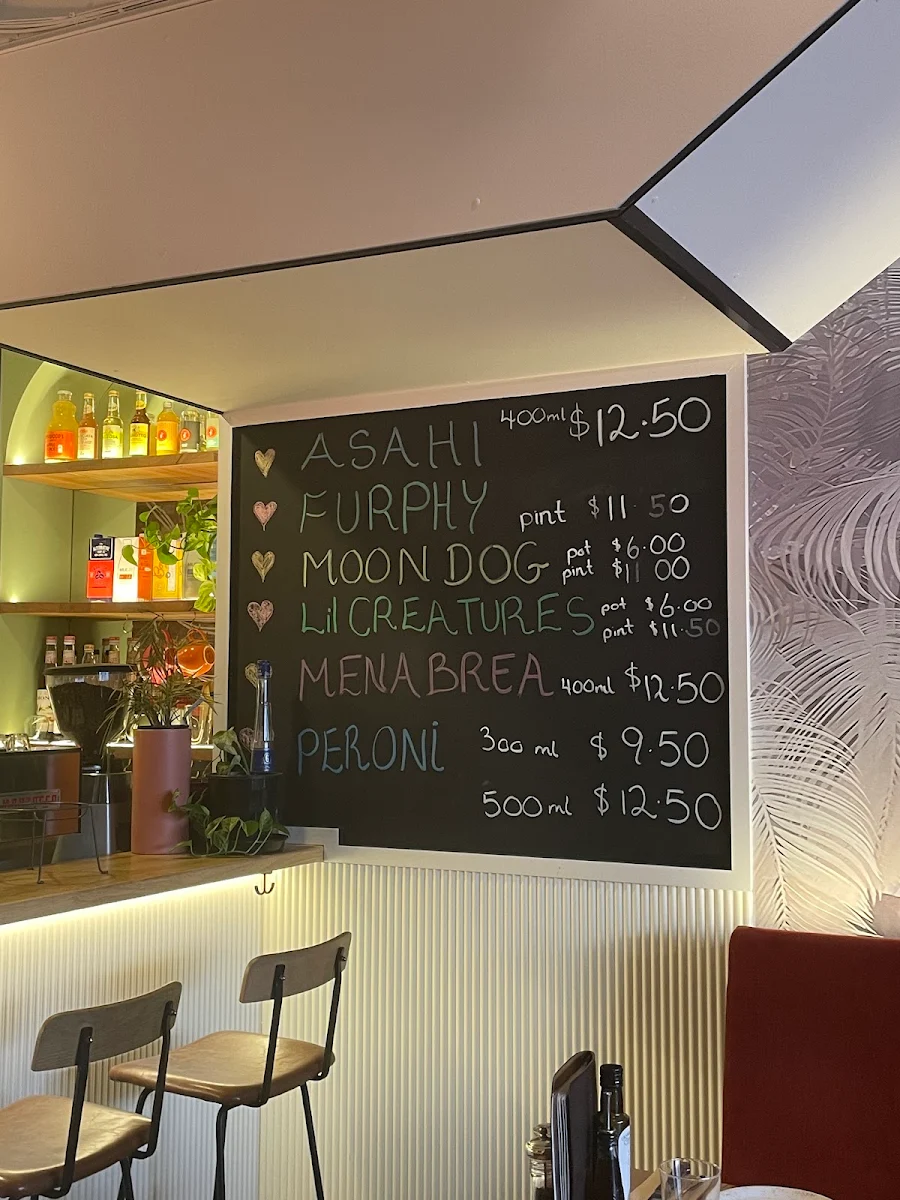 400ml $12.50
ASAHI
FURPHY pint $11.50
MOON DOG pot $6.00
pint $11.00
Lil CREATURES pot $6.00
pint $11.50
MENABREA 400ml $12.50
PERONi 300 ml $9.50
500 ml $12.50